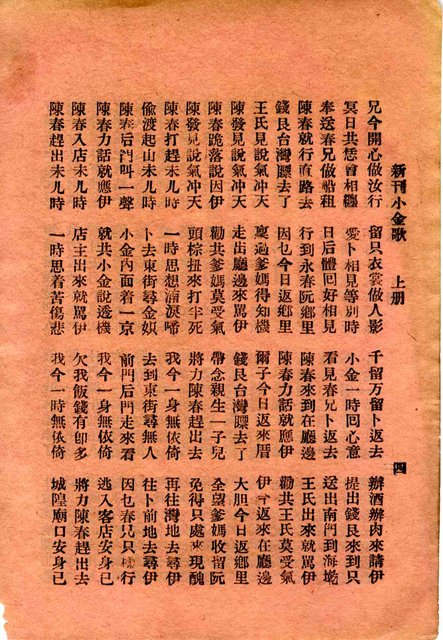 新刊小金歌 上册 四
兄今開心做汝行 留只衣裳做人影 千留万留卜返去 辦酒辦肉來請伊
冥日共恁曾相纏 愛卜相見等別時 小金一時回心意 提出錢艮來到只
奉送春兄做船租 日后體回好相見 看見春兄卜返去 送出南門到海墘
陳春就行直路去 行到永春阮鄉里 陳春來到在廳邊 王氏出來就罵伊
錢艮台灣去了 因乜今日返鄉里 陳春力話就應伊 勸共王氏莫受氣
王氏見說氣冲天 稟過爹媽得知機 爾子今日返來厝 伊今返來在廳邊
陳發見說氣冲天 走出廳邊來罵伊 錢艮台灣去了 大胆今日返鄉里
陳春跪落說因伊 勸共爹媽莫受氣 帶念親生一子兒 全望爹媽收留阮
陳發見說氣冲天 頭棕扭來打半死 將力陳春趕出去 免得只處來現醜
陳春打趕未几時 一時思想淚啼 我今一身無依倚 再往灣地去尋伊
偷渡起山未几時 卜去東街尋金娘 去到東街尋無人 往卜前地去尋伊
陳春后門叫一聲 小金內面着一京 前門后門走來看 因乜春兄只樣行
陳春力話就應伊 就共小金說透機 我今一身無依倚 逃入客店安身己
陳春入店未几時 店主出來就罵伊 欠我飯錢有即多 將力陳春趕出去
陳春趕出未几時 一時思着苦傷悲 我今一時無依倚 城隍廟口安身己